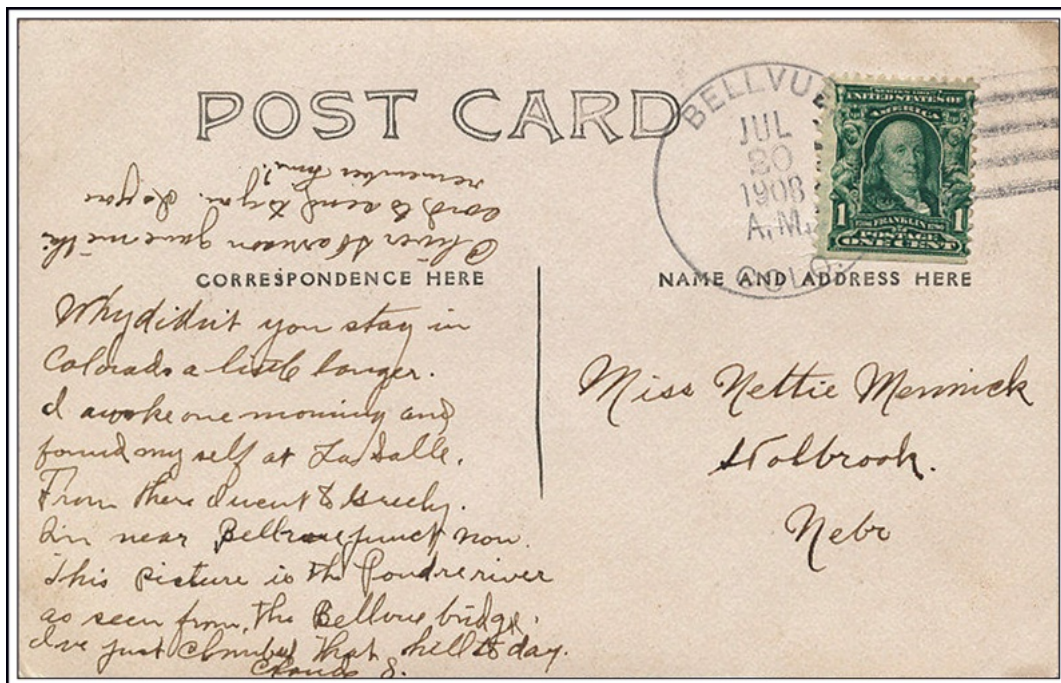 POST CARD
BELLVUE
JUL
20
1908
A.M.
COLO.
SERIES 1902
UNITED STATES OF
AMERICA
1 FRANKLIN 1
POSTAGE
ONE CENT
Oliver Harrison gave me this
card to send to you. Do you
remember him?
CORRESPONDENCE HERE
NAME AND ADDRESS HERE
Why didn't you stay in
Colorado a little longer.
I awoke one morning and
found my self at La Salle.
From there I went to Greely.
Im near Bellvue junct now.
This picture is the Poudre river
as seen from the Bellvue bridge.
I've just climbed that hill to day.
Claude S.
Miss Nettie Merinick
Holbrook.
Nebr